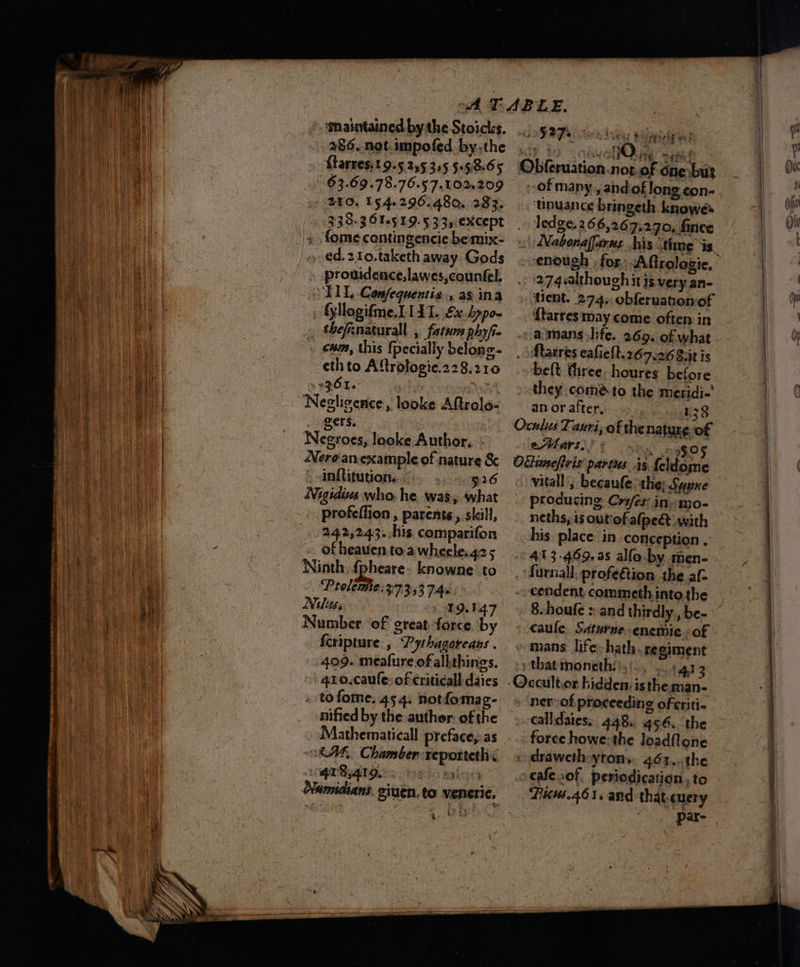 A TABLE.
maintained by the Stoickes.
286. not impoſed by the
ſtarres.19.5.25 3.5 5.58.65
63.69.78.76.57.102.209
210. 154.296.480. 283.
338.361.519.533, except
ſome contingencie be mix-
ed.210.taketh away Gods
prouidence,lawes,counſel.
III. Conſequentia, as in a
ſyllogiſme.III I. Ex hypo-
theſi naturall, fatum phyſi-
cum, this ſpecially belong-
eth to Aſtrologie.228.210
361.
Negligence, looke Aſtrolo-
gers.
Negroes, looke Author.
Nero an example of nature &
inſtitution. 526
Nigidius who he was, what
profeſſion, parents, skill,
242,243. his compariſon
of heauen to a wheele.425
Ninth ſpheare knowne to
Ptolemie.373,374.
Nilus, 19.147
Number of great force by
ſcripture, Pythagoreans.
409. meaſure of all things.
410.cauſe of criticall daies
to ſome. 454. not ſo mag-
nified by the author of the
Mathematicall preface, as
M. Chamber reporteth.
418,419.
Numidians. giuen to venerie.
527.
O.
Obſeruation not of one but
of many, and of long con-
tinuance bringeth knowe-
ledge.266,267.270. ſince
Nabonaſſarus his time is
enough for Aſtrologie,
274.although it is very an-
tient. 274. obſeruation of
ſtarres may come often in
a mans life. 269. of what
ſtarres eaſieſt.267.268.it is
beſt three houres before
they come to the meridi-
an or after, 138
Oculus Tauri, of the nature of
Mars. 505
Octimeſtris partus is ſeldome
vitall, becauſe the
producing Criſes in mo-
neths, is out of aſpect with
his place in conception.
413.469.as alſo by men-
ſtruall profection the aſ-
cendent commeth into the
8.houſe: and thirdly, be-
cauſe Saturne enemie of
mans life hath regiment
that moneth. 413
Occult or hidden is the man-
ner of proceeding of criti-
call daies. 448. 456. the
force howe the loadſtone
draweth yron. 461. the
caſe of periodication, to
Picus.461. and that euery
par-